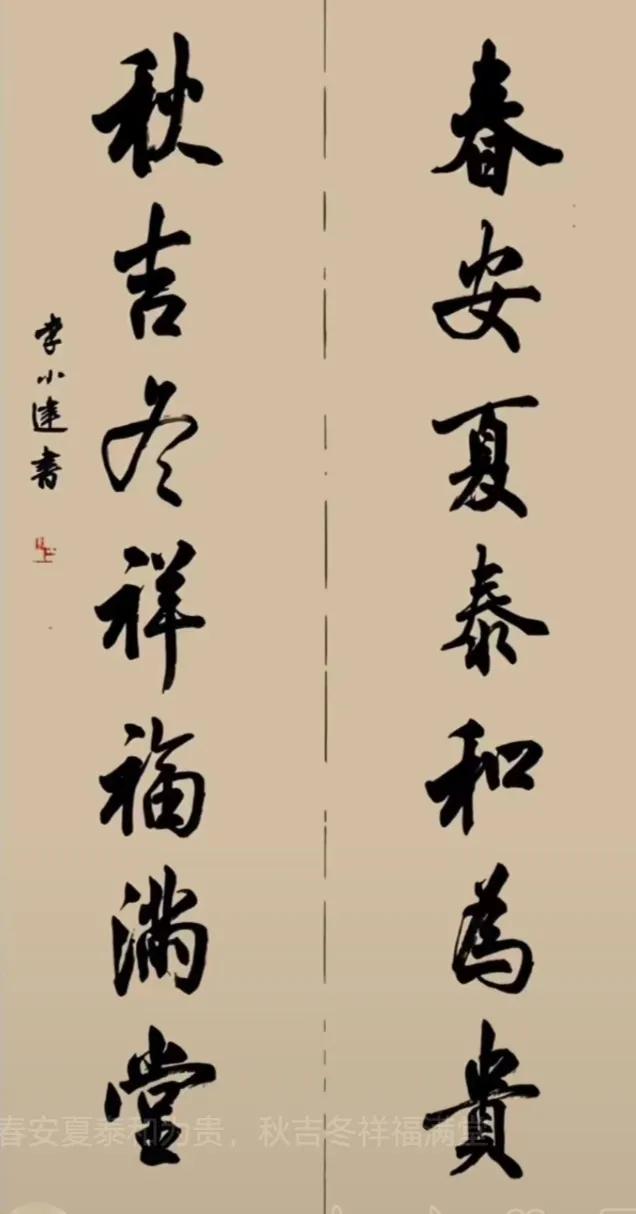 春安夏泰和為貴
秋吉冬祥福滿堂
李小達書
春安夏泰和为贵，秋吉冬祥福满堂